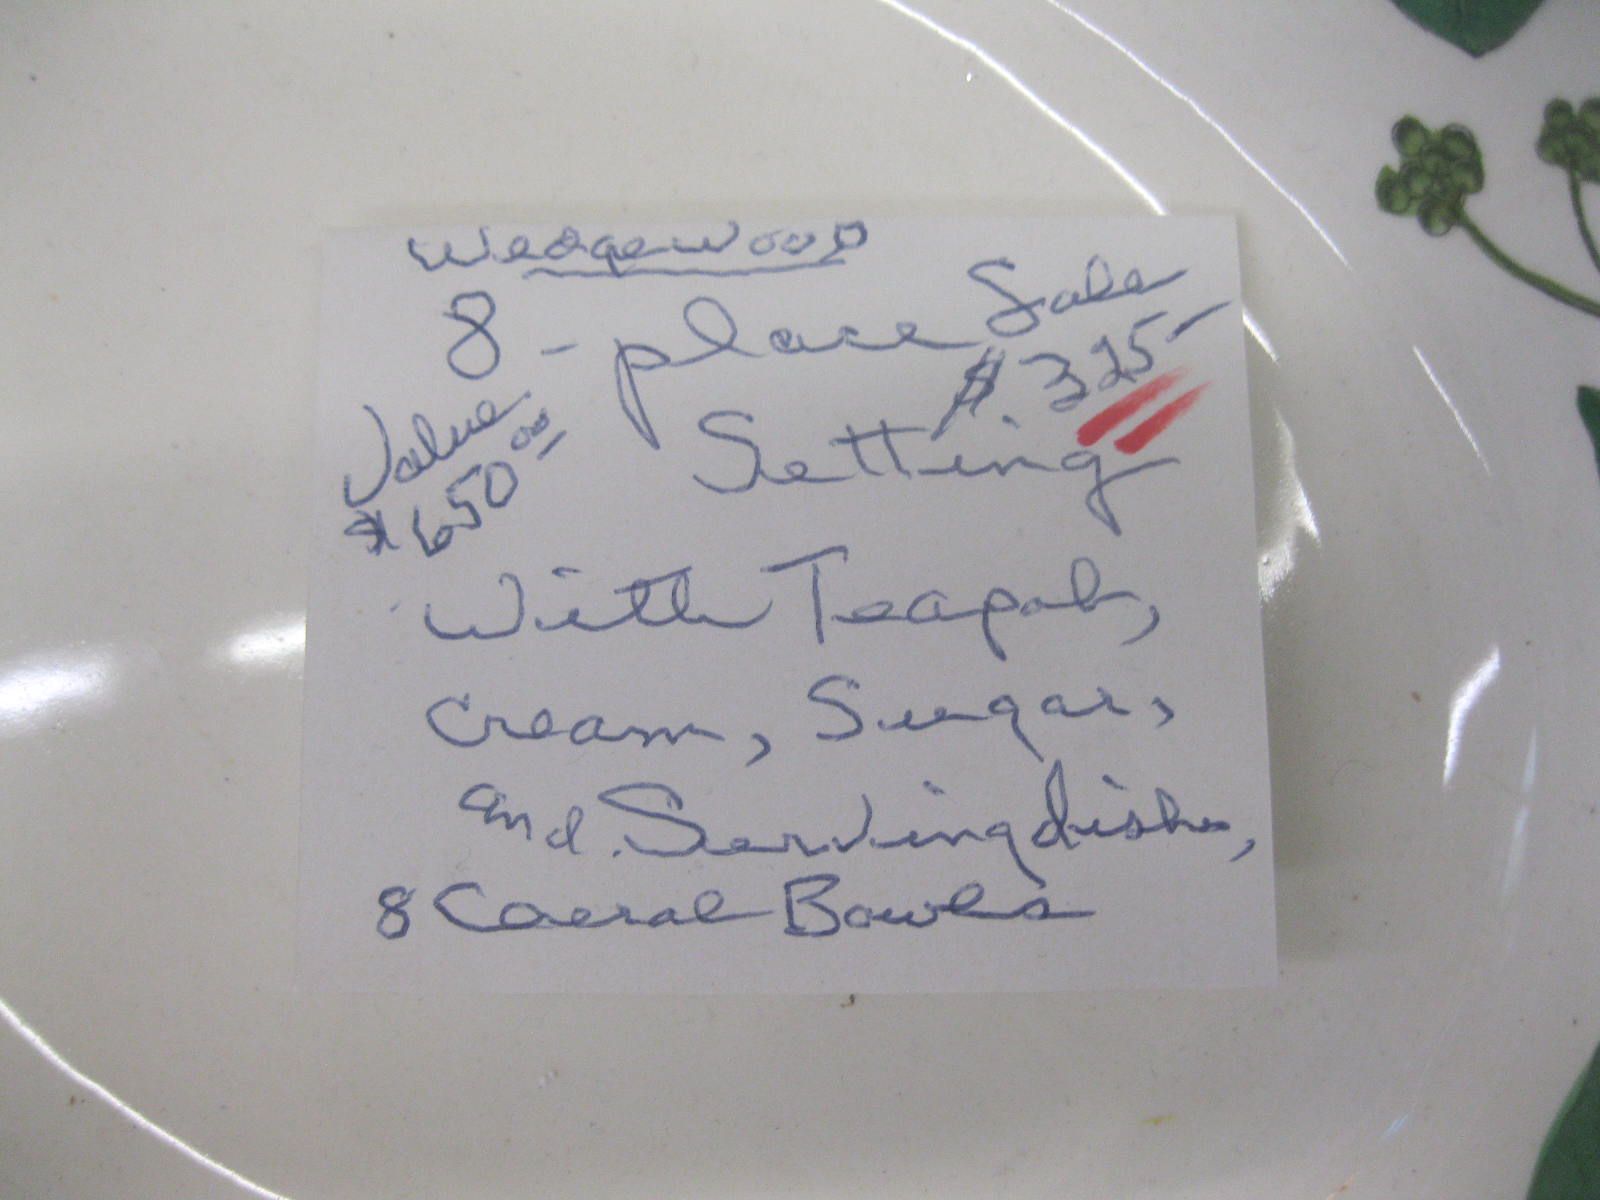 Wedgewood
8-place
Sale
$325-
Setting
Value
$650.00
With Teapot,
cream, Sugar,
and Serving dishes,
8 Coeral Bowls